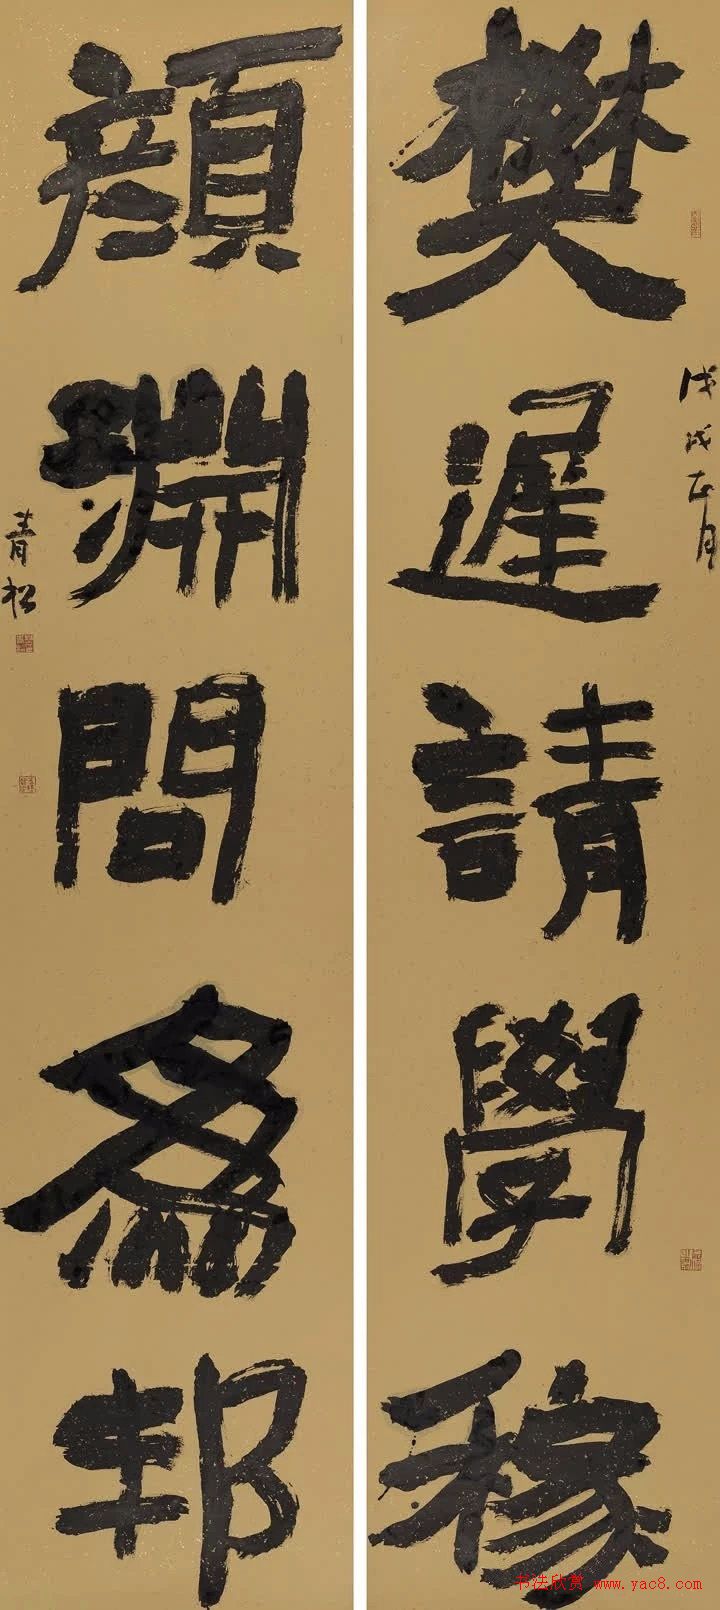 樊遲請學稼
戊戌正月
顏淵問為邦
青松
书法欣赏 www.yac8.com